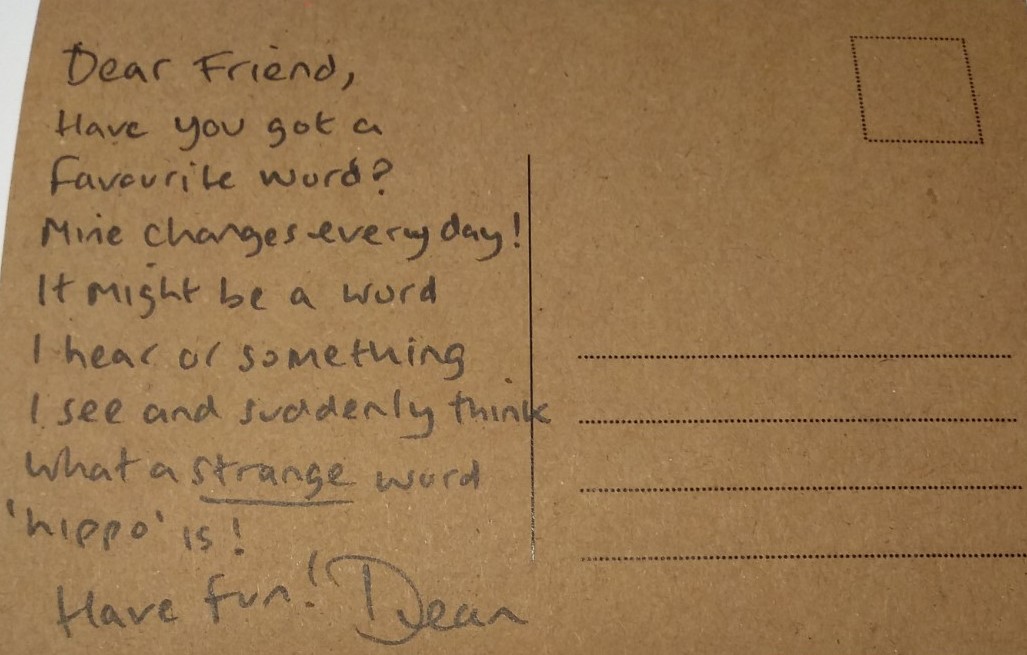 Dear Friend,
Have you got a
favourite word?
Mine changes every day!
It might be a word
I hear or something
I see and suddenly think
what a strange word
'hippo' is!
Have fun! Dean